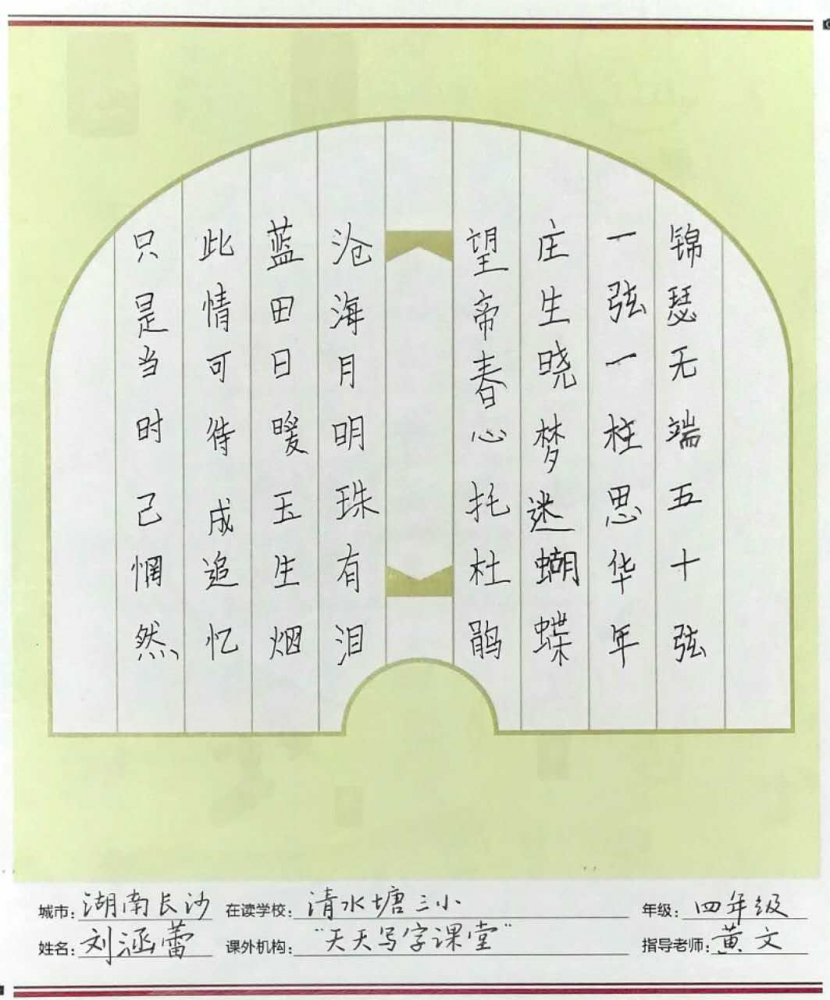 锦瑟无端五十弦
一弦一柱思华年
庄生晓梦迷蝴蝶
望帝春心托杜鹃
沧海月明珠有泪
蓝田日暖玉生烟
此情可待成追忆
只是当时己惘然
城市:湖南长沙 在读学校:清水塘三小 年级:四年级
姓名:刘涵蕾 课外机构:"天天写字课堂" 指导老师:黄文